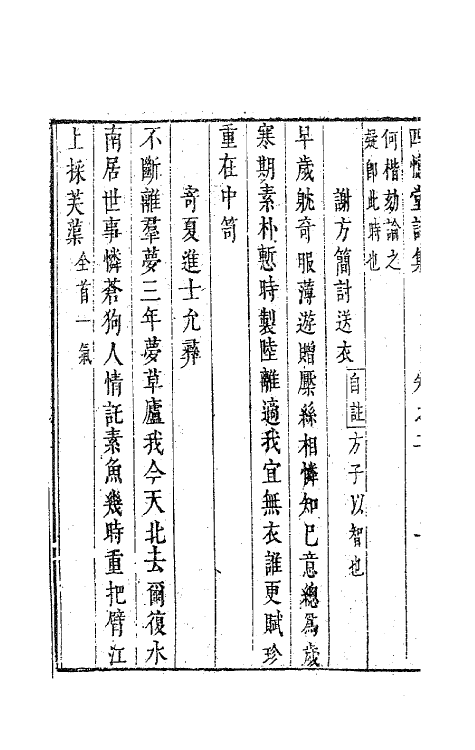 四憶堂詩集 卷之二
何楷劾論之
疑卽此時也
謝方簡討送衣 自註方子以智也
早歲躭奇服薄遊贈壓絲相憐知已意總爲歲
寒期素朴慙時製陸離適我宜無衣誰更賦珍
重在中笥
寄夏進士允彞
不斷離羣夢三年夢草廬我今天北去爾復水
南居世事憐蒼狗人情託素魚幾時重把臂江
上採芙蕖 全首一氣